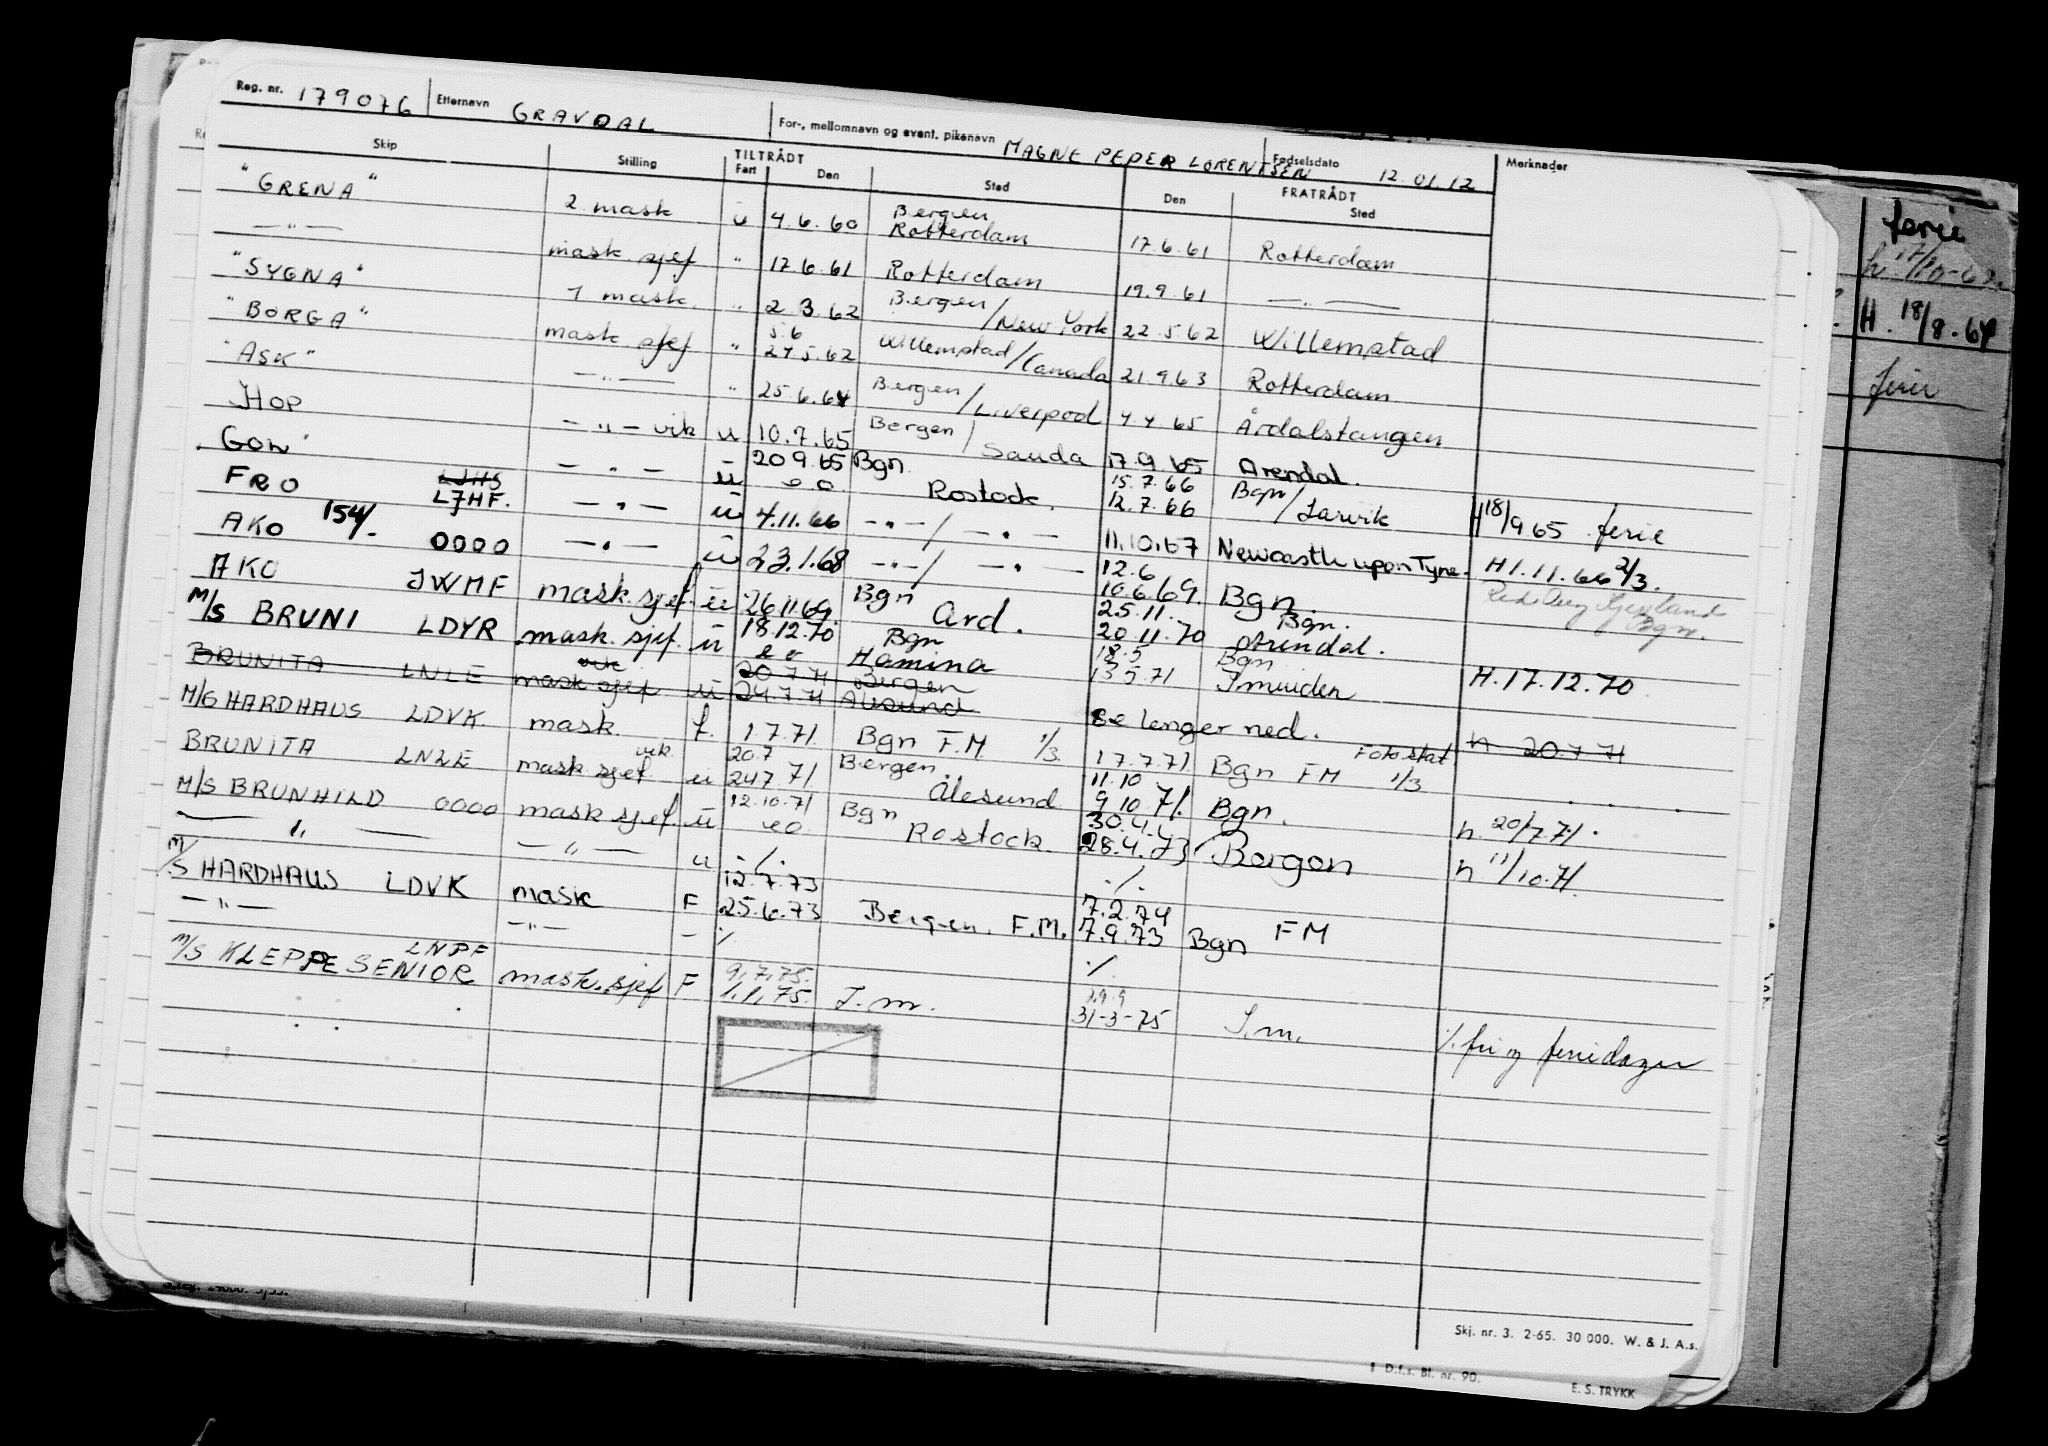 Reg. nr. 179076 Etternavn GRAVDAL For-, mellomnavn og event. pikenavn MAGNE PEDER LORENTSEN Fødselsdato 12.01.12 Merknader
Skip Stilling TILTRÅDT Fart Den Sted Den FRATRÅDT Sted
"GRENA" 2 mask u 4.6.60 Bergen Rotterdam 17.6.61 Rotterdam
—"— mask sjef " 17.6.61 Rotterdam 19.9.61 —"—
"SYGNA" 1 mask. " 2.3.62 Bergen/New York 22.5.62 Willemstad
"BORGA" mask sjef " 5.6 24.5.62 Willemstad/Canada 21.9.63 Rotterdam
"ASK" —"— " 25.6.64 Bergen/Liverpool 4.4.65 Årdalstangen
HOP —"— vik u 10.7.65 Bergen/Sauda 17.9.65 Arendal.
GOW —"— u 20.9.65 Bgn. e o. Rostock. 15.7.66 12.7.66 Bgn/Larvik H 18/9.65 ferie
FRO LJHF. —"— u 4.11.66 —"—/—"— 11.10.67 Newcastle upon Tyne. H 1.11.66 2/3.
AKO 154/- 0000 —"— u 23.1.68 —"—/—"— 12.6 10.6.69. Bgn.
AKO JWMF mask.sjef. u 26.11.69. 18.12.70 Bgn Ard. 25.11. 20.11.70 Bgn. Arendal.
M/S BRUNI LDYR mask. sjef. u e o Bgn Hamina 18.5 13.5.71 Bgn Ijmuiden H.17.12.70
BRUNITA LNLE vik mask sjef u 20.7.71 24.7.71 Bergen Alesund se lenger ned. h 20.7.71
M/G HARDHAUS LDVK mask. f. 1.7.71. Bgn F.M. 1/3. 17.7.71 Bgn FM Fotostat 1/3
BRUNITA LNLE vik. mask sjef. u 20.7 24.7 71 Bergen. Ålesund 11.10 9.10.71. Bgn. h. 20/7.71.
M/S BRUNHILD 0000 mask sjef. u 12.10.71 e o. Bgn Rostock. 30.4. 28.4.73 Bergen h 11/10.71.
—"— —"— u ./. ./.
M/S HARDHAUS LDVK mask F 12.7.73 25.6.73 Bergen. F.M. 7.2.74 7.9.73 Bgn FM
—"— —"— — ./. ./.
M/S KLEPPE SENIOR LNPF mask.sjef F 9.7.75. 1.1.75. I.m. 29.9 31-3-75 I.m. ./. fri og feriedager
ferie
H. 18/8.64
ferie
Skj. nr. 3. 2-65. 30 000. W. & J. A.s.
D.f.s. Bl. nr. 90.
E. S. TRYKK